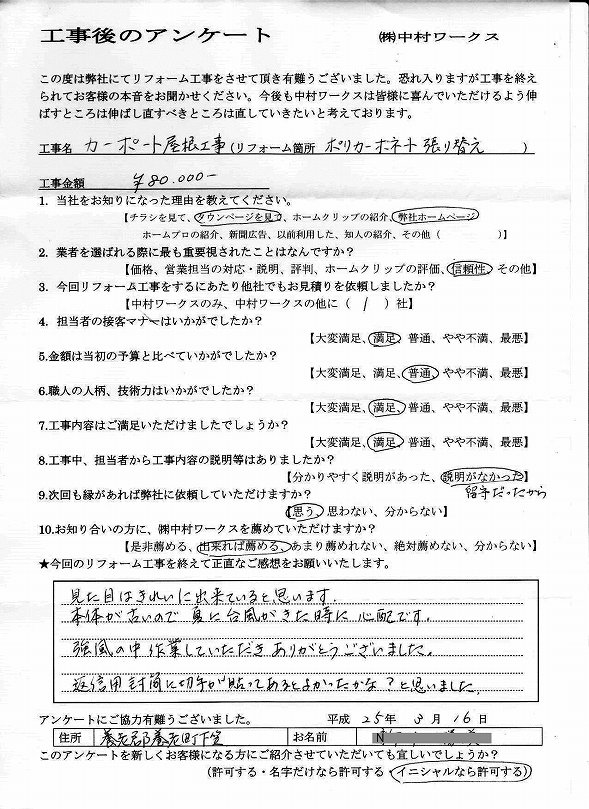 工事後のアンケート ㈱中村ワークス
この度は弊社にてリフォーム工事をさせて頂き有難うございました。恐れ入りますが工事を終え
られてお客様の本音をお聞かせください。今後も中村ワークスは皆様に喜んでいただけるよう伸
ばすところは伸ばし直すべきところは直していきたいと考えております。
工事名 カーポート屋根工事(リフォーム箇所 ポリカーボネート張り替え )
工事金額 ¥80.000-
1. 当社をお知りになった理由を教えてください。
【チラシを見て、タウンページを見て、ホームクリップの紹介、弊社ホームページ
ホームプロの紹介、新聞広告、以前利用した、知人の紹介、その他( )】
2. 業者を選ばれる際に最も重要視されたことはなんですか?
【価格、営業担当の対応・説明、評判、ホームクリップの評価、信頼性、その他】
3. 今回リフォーム工事をするにあたり他社でもお見積りを依頼しましたか?
【中村ワークスのみ、中村ワークスの他に( 1 )社】
4. 担当者の接客マナーはいかがでしたか?
【大変満足、満足、普通、やや不満、最悪】
5.金額は当初の予算と比べていかがでしたか?
【大変満足、満足、普通、やや不満、最悪】
6.職人の人柄、技術力はいかがでしたか?
【大変満足、満足、普通、やや不満、最悪】
7.工事内容はご満足いただけましたでしょうか?
【大変満足、満足、普通、やや不満、最悪】
8.工事中、担当者から工事内容の説明等はありましたか?
【分かりやすく説明があった、説明がなかった】
留守だったから
9.次回も縁があれば弊社に依頼していただけますか?
【思う、思わない、分からない】
10.お知り合いの方に、㈱中村ワークスを薦めていただけますか?
【是非薦める、出来れば薦める、あまり薦めれない、絶対薦めない、分からない】
★今回のリフォーム工事を終えて正直なご感想をお願いいたします。
見た目はきれいに出来ていると思います.
本体が古いので 夏に台風がきた時に 心配です.
強風の中 作業していただき ありがとうございました。
返信用封筒に切手が貼ってあるとよかったかな?と思いました.
アンケートにご協力有難うございました。 平成 25年 3月 16日
住所 養老郡養老町下笠 お名前
このアンケートを新しくお客様になる方にご紹介させていただいても宜しいでしょうか?
(許可する・名字だけなら許可する・イニシャルなら許可する)